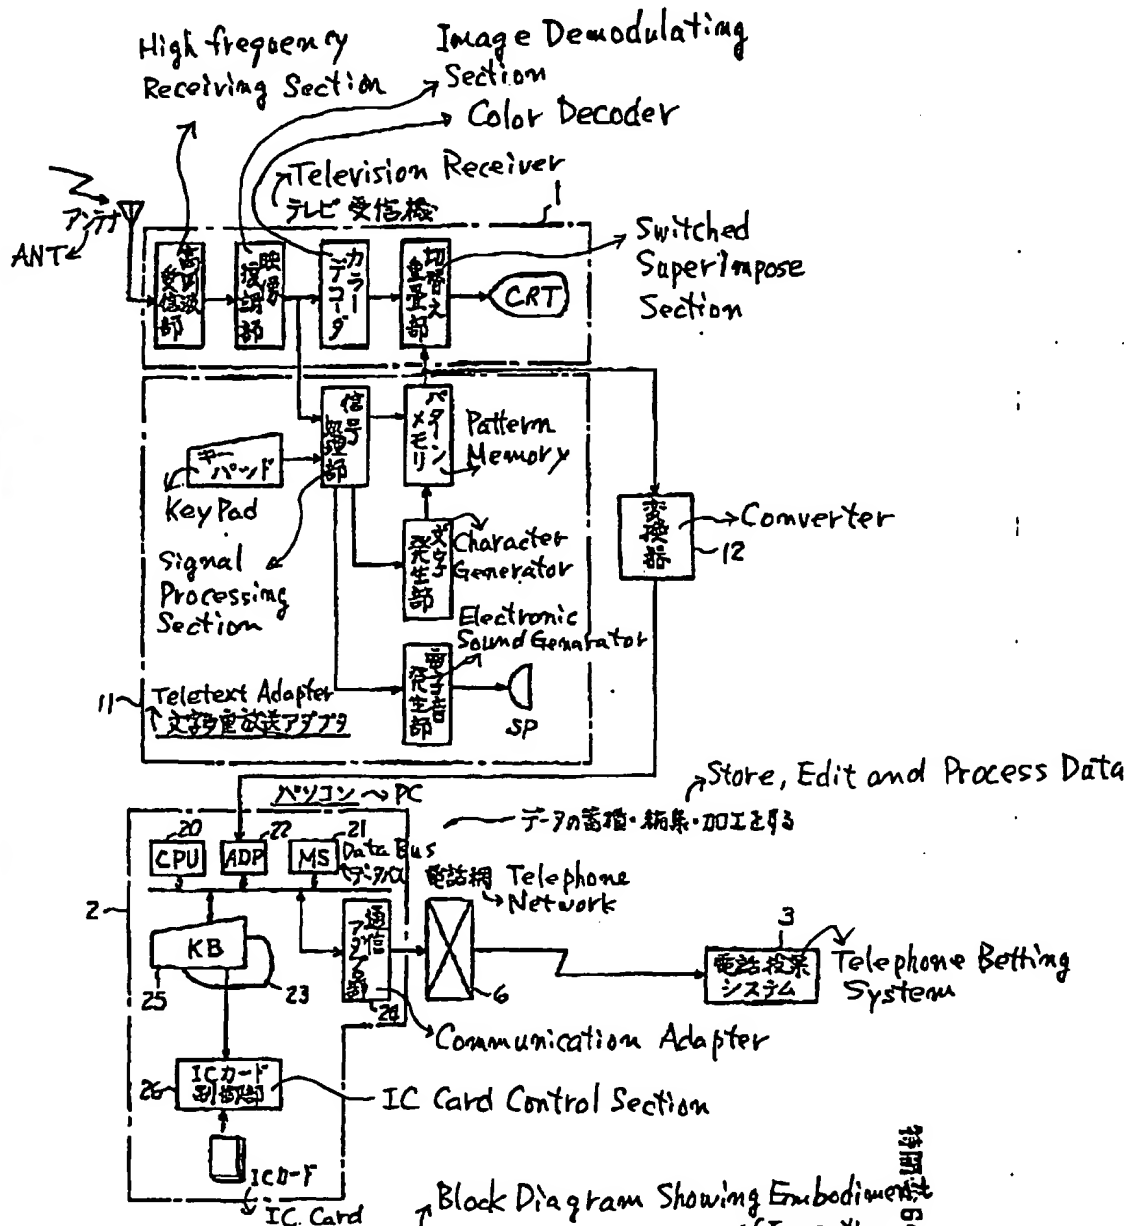 High frequency
Receiving Section
Image Demodulating
Section
Color Decoder
Television Receiver
テレビ受信機
1
アンテナ
ANT
高周波
受信部
映像
復調部
カラー
デコーダ
切替え
重畳部
CRT
Switched
SuperImpose
Section
信号
処理部
パターン
メモリ
Pattern
Memory
キー
パッド
KeyPad
Signal
Processing
Section
文字
発生部
Character
Generator
変換器
Converter
12
Electronic
Sound Genarator
電子音
発生部
SP
11
Teletext Adapter
文字多重放送アダプタ
Store, Edit and Process Data
パソコン PC
データの蓄積・編集・加工をする
20
22
21
CPU
ADP
MS
Data Bus
データバス
電話網
Telephone
Network
2
KB
25
23
通信
アダプタ部
24
6
3
電話投票
システム
Telephone Betting
System
Communication Adapter
26
ICカード
制御部
IC Card Control Section
ICカード
IC Card
Block Diagram Showing Embodiment